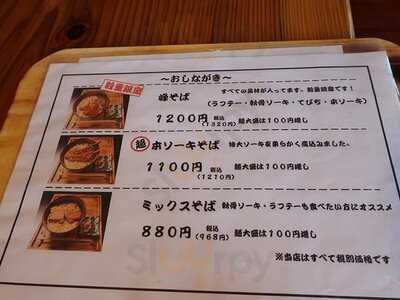 ～おしながき～
数量限定
峰そば
すべての具材が入ってます。数量限定です！
(ラフテー・軟骨ソーキ・てびち・本ソーキ)
1200円 税込(1320円) 麺大盛は100円増し
超 本ソーキそば 特大ソーキを柔らかく煮込みました。
1100円 税込(1210円) 麺大盛は100円増し
ミックスそば 軟骨ソーキ・ラフテーも食べたい方にオススメ
880円 税込(968円) 麺大盛は100円増し
※当店はすべて税別価格です